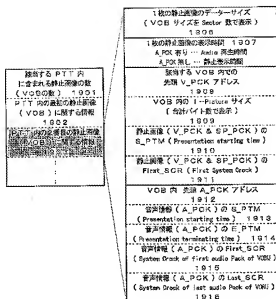 該当する PTT 内
に含まれる静止画像の数
(VOBの数) 1901
PTT 内の最初の静止画像
(VOB)に関する情報
1902
PTT 内の2番目の静止画像
に関する情報
1枚の静止画像のデーターサイズ
(VOB サイズを Sector 数で表示)
1906
1枚の静止画像の表示時間 1907
A_PCK 有り … Audio 再生時間
A_PCK 無し … 静止表示時間
該当する VOB 内での
先頭 V_PCK アドレス
1908
VOB 内の I-Picture サイズ
[合計バイト数で表示]
1909
静止画像 (V_PCK & SP_PCK) の
S_PTM (Presentation starting time)
1910
静止画像 (V_PCK & SP_PCK) の
First_SCR (First System Crock)
1911
VOB 内 先頭 A_PCK アドレス
1912
音声情報 (A_PCK) の S_PTM
(Presentation starting time) 1913
音声情報 (A_PCK) の E_PTM
(Presentation terminating time) 1914
音声情報 (A_PCK) の First_SCR
(System Crock of first audio Pack of VOBU)
1915
音声情報 (A_PCK) の Last_SCR
(System Crock of last audio Pack of VOBU)
1916